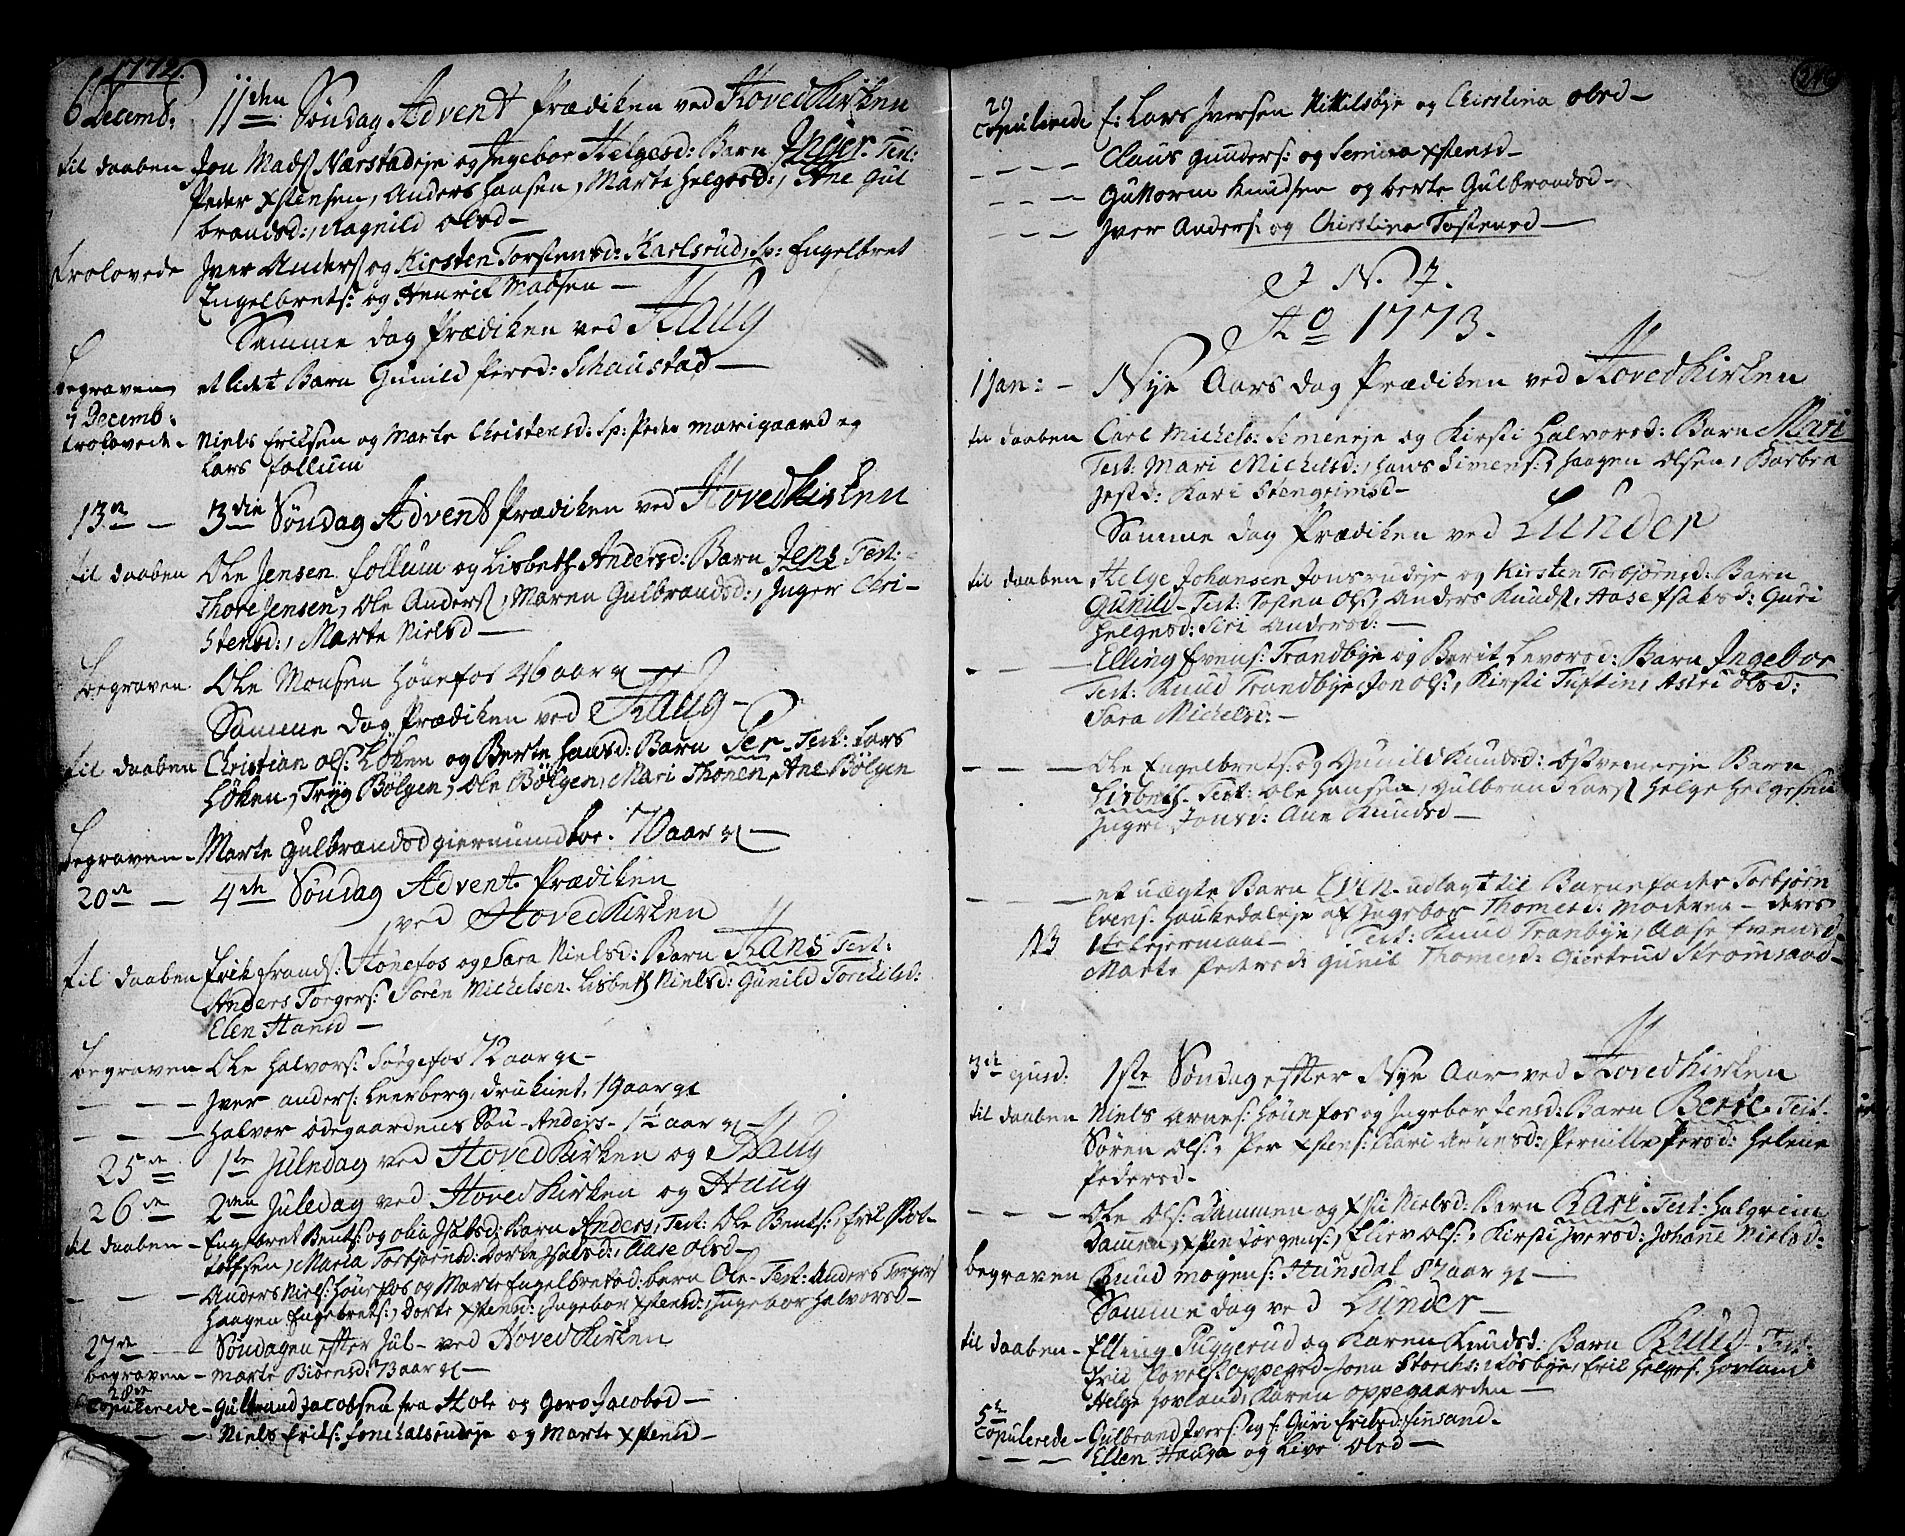 1772.
6 Decemb: 11den Søndag Advent Prædiken ved HovedKirken
til daaben Jon Mads Værstadeje og Ingebor Helgesd: Barn Inger. Test:
Peder Xstensen, Anders Hansen, Marte Helgesd:, Ane Gul
brandsd:, Ragnild Olsd—
Trolovede Jver Anders og Kirsten Torstensd: Karlsrud, Sp: Engelbret
Engelbrets: og Henrik Madsen—
Samme dag Prædiken ved Haug
Begraven et lidet Barn Gunild Persd: Schaustad—
7 Decemb:
trolovede- Niels Eriksen og Marte Christensd: Sp: Peder marigaard og
Lars follum
13de — 3die Søndag Advent Prædiken ved HovedKirken
til daaben Ole Jensen follum og Lisbeth Andersd: Barn Jens Test:
Thore Jensen, Ole Anders, Maren Gulbrandsd:, Inger Chri-
stensd:, Marte Nielsd—
Begraven Ole Monsen Hønefos 46 aar gl
Samme dag Prædiken ved Haug-
til daaben Christian Ols: Løken og Berte Hansd: Barn Per- Test: Lars
Løken, Tryg Bølgen, Ole Bølgen, Mari Thonen, Ane Bølgen
Begraven- Marte Gulbrandsd giermundboe. 70 aar gl—
20de — 4de Søndag Advent. Prædiken
ved HovedKirken
til daaben Erik frands: Hønefos og Sara Nielsd: Barn Hans Test:
Anders Torgers: Søren Michelsen. Lisbeth Nielsd: Gunild Torchilsd:
Elen Hansd—
Begraven Ole Halvors: Sørgefos 72 aar gl—
— — — Jver anders: Leerberg, druknet, 19 aar gl
— — — Halvor ødegaardens Søn- Anders- 1½ aar gl—
25de 1ste Juledag ved HovedKirken og Haug
26de 2den Juledag ved HovedKirken og Haug
til daaben- Engebret Bents: og Olia Jsaksd: Barn Anders, Test: Ole Bents:, Erik Rol-
lufsen, Maria Torbjørnsd: Dorte Halsd:, Aase Olsd—
— — — Anders Niels: Hønefos og Marte Engelbretsd: barn Ole- Test: Anders Torgers
Haagen Engebrets:, Dorte Xstensd: Ingebor Xstensd:, Ingebor Halvorsd—
27de — Søndagen efter Jul- ved HovedKirken
begraven- Marte Biørnsd: 73 aar gl—
28de
Copulerede- Gulbrand Jacobsen fra Hole og Goro Jacobsd—
— — — Niels Eriks: fonkalsrudeje og Marte Xstensd—
29
Copulerede E: Lars Jversen Nikkilsbye og Christina Olsd—
— — — Claus Gunders: og Xstensd—
— — — Guttorm Knudsen og berte Gulbrandsd—
— — — Jver Anders: og Christina Tostensd—
J. N. J.
Ao 1773.
1 Jan: - Nye Aars dag Prædiken ved HovedKirken
til daaben Carl Michels: Semeneje og Kirsti Halvorsd: Barn Mari
Test: Mari Michelsd:, Hans Simens:, Haagen Olsen, Barbra
Jestd: Kari Stengrimsd—
Samme dag Prædiken ved Lunder
til daaben Helge Johansen Jonsrudeje og Kirsten Torbjørnsd: Barn
Gunild- Test: Tosten Ols:, Anders Knuds, Aase Jsaksd: Guri
Helgesd: Siri Andersd:—
— — — Elling Evens: Trandbye og Berit Levorsd: Barn Ingebor
Test: Knud Trandbye, Jon Ols:, Kirsti Tuftin, Astri Olsd:
Sara Michelsd:—
— — — Ole Engelbrets: og Gunild Knudsd: Barn
Lisbeth- Test: Ole Hansen, Gulbrand Lars Helge Helgesen
Ingri Jonsd: Ane Knudsd—
— — — et uægte Barn Even- udlagt til Barnefader Torbjørn
Evens: Haukedaleje af Ingebor Thomesd: Moderen- deres
NB 1te Lejermaal— Test: Knud Tranbye, Aase Evensd
Marte Pedersd: Gunil Thomesd: Giertrud Strømsaad—
3de 1ste Søndag effter Nye Aar ved HovedKirken
til daaben Niels Arnes: Hønefos og Ingebor Jensd: Barn Berte- Test.
Søren Ols:, Per Xstens: Kari Arnesd:, Pernille Persd: Helene
Pedersd-
— — — Ole Ols: Dammen og Xsti Nielsd: Barn Kari- Test: Halgrim
Damen, Xsten Jørgens:, Eliev Ols:, Kirsti Jversd: Johane Nielsd:
begraven Knud mogens: Hunsdal 87 aar gl—
Samme dag ved Lunder—
til daaben- Elling Puggerud og Karen Knudsd: Barn Knud- Test:
Erik Povels: oppegrd- Jona Storchs: Løsbye, Erik Helges: Hovland
Helge Hovland, Karen oppegaarden—
5te
Copulerede- Gulbrand Jvers: og E: Guri Eriksd: finsand.
— — — Ellen Hauga og Live Olsd—